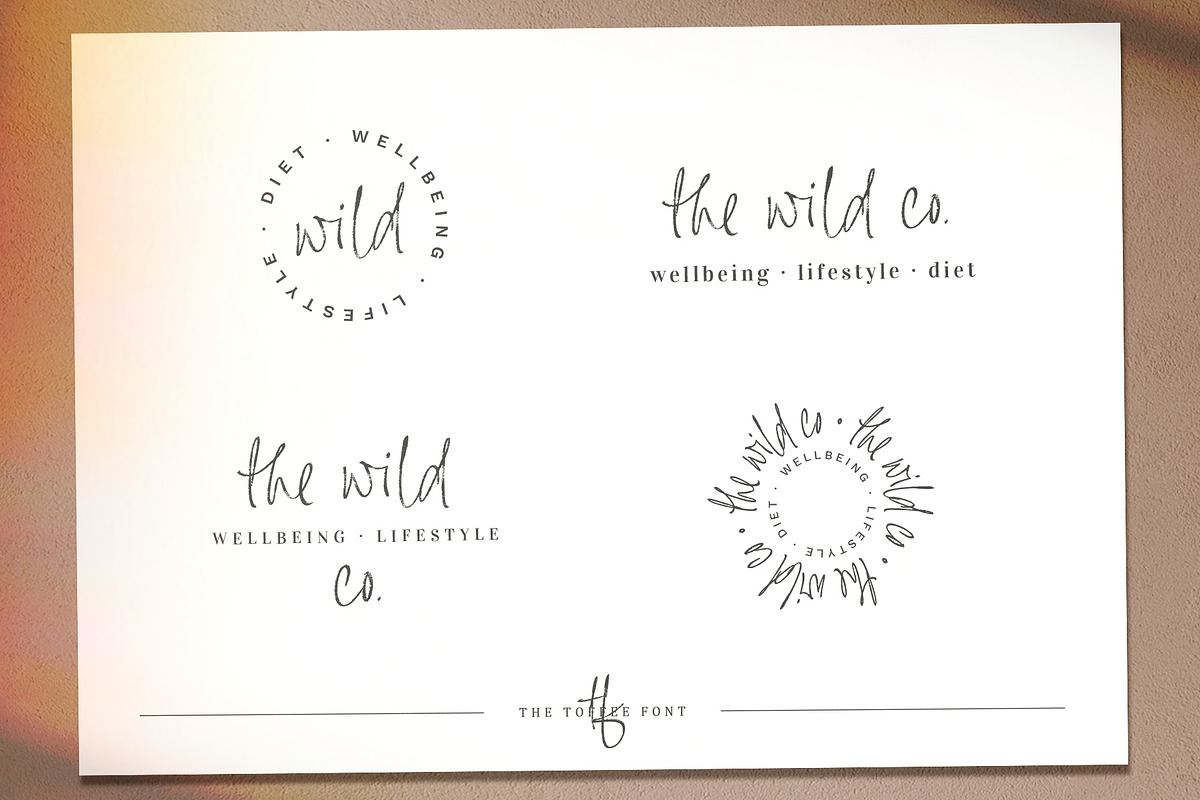 DIET · WELLBEING · LIFESTYLE ·
wild
the wild co.
wellbeing · lifestyle · diet
the wild
WELLBEING · LIFESTYLE
co.
the wild co • the wild co • the wild co •
WELLBEING · LIFESTYLE · DIET ·
THE TOFFEE FONT
tf